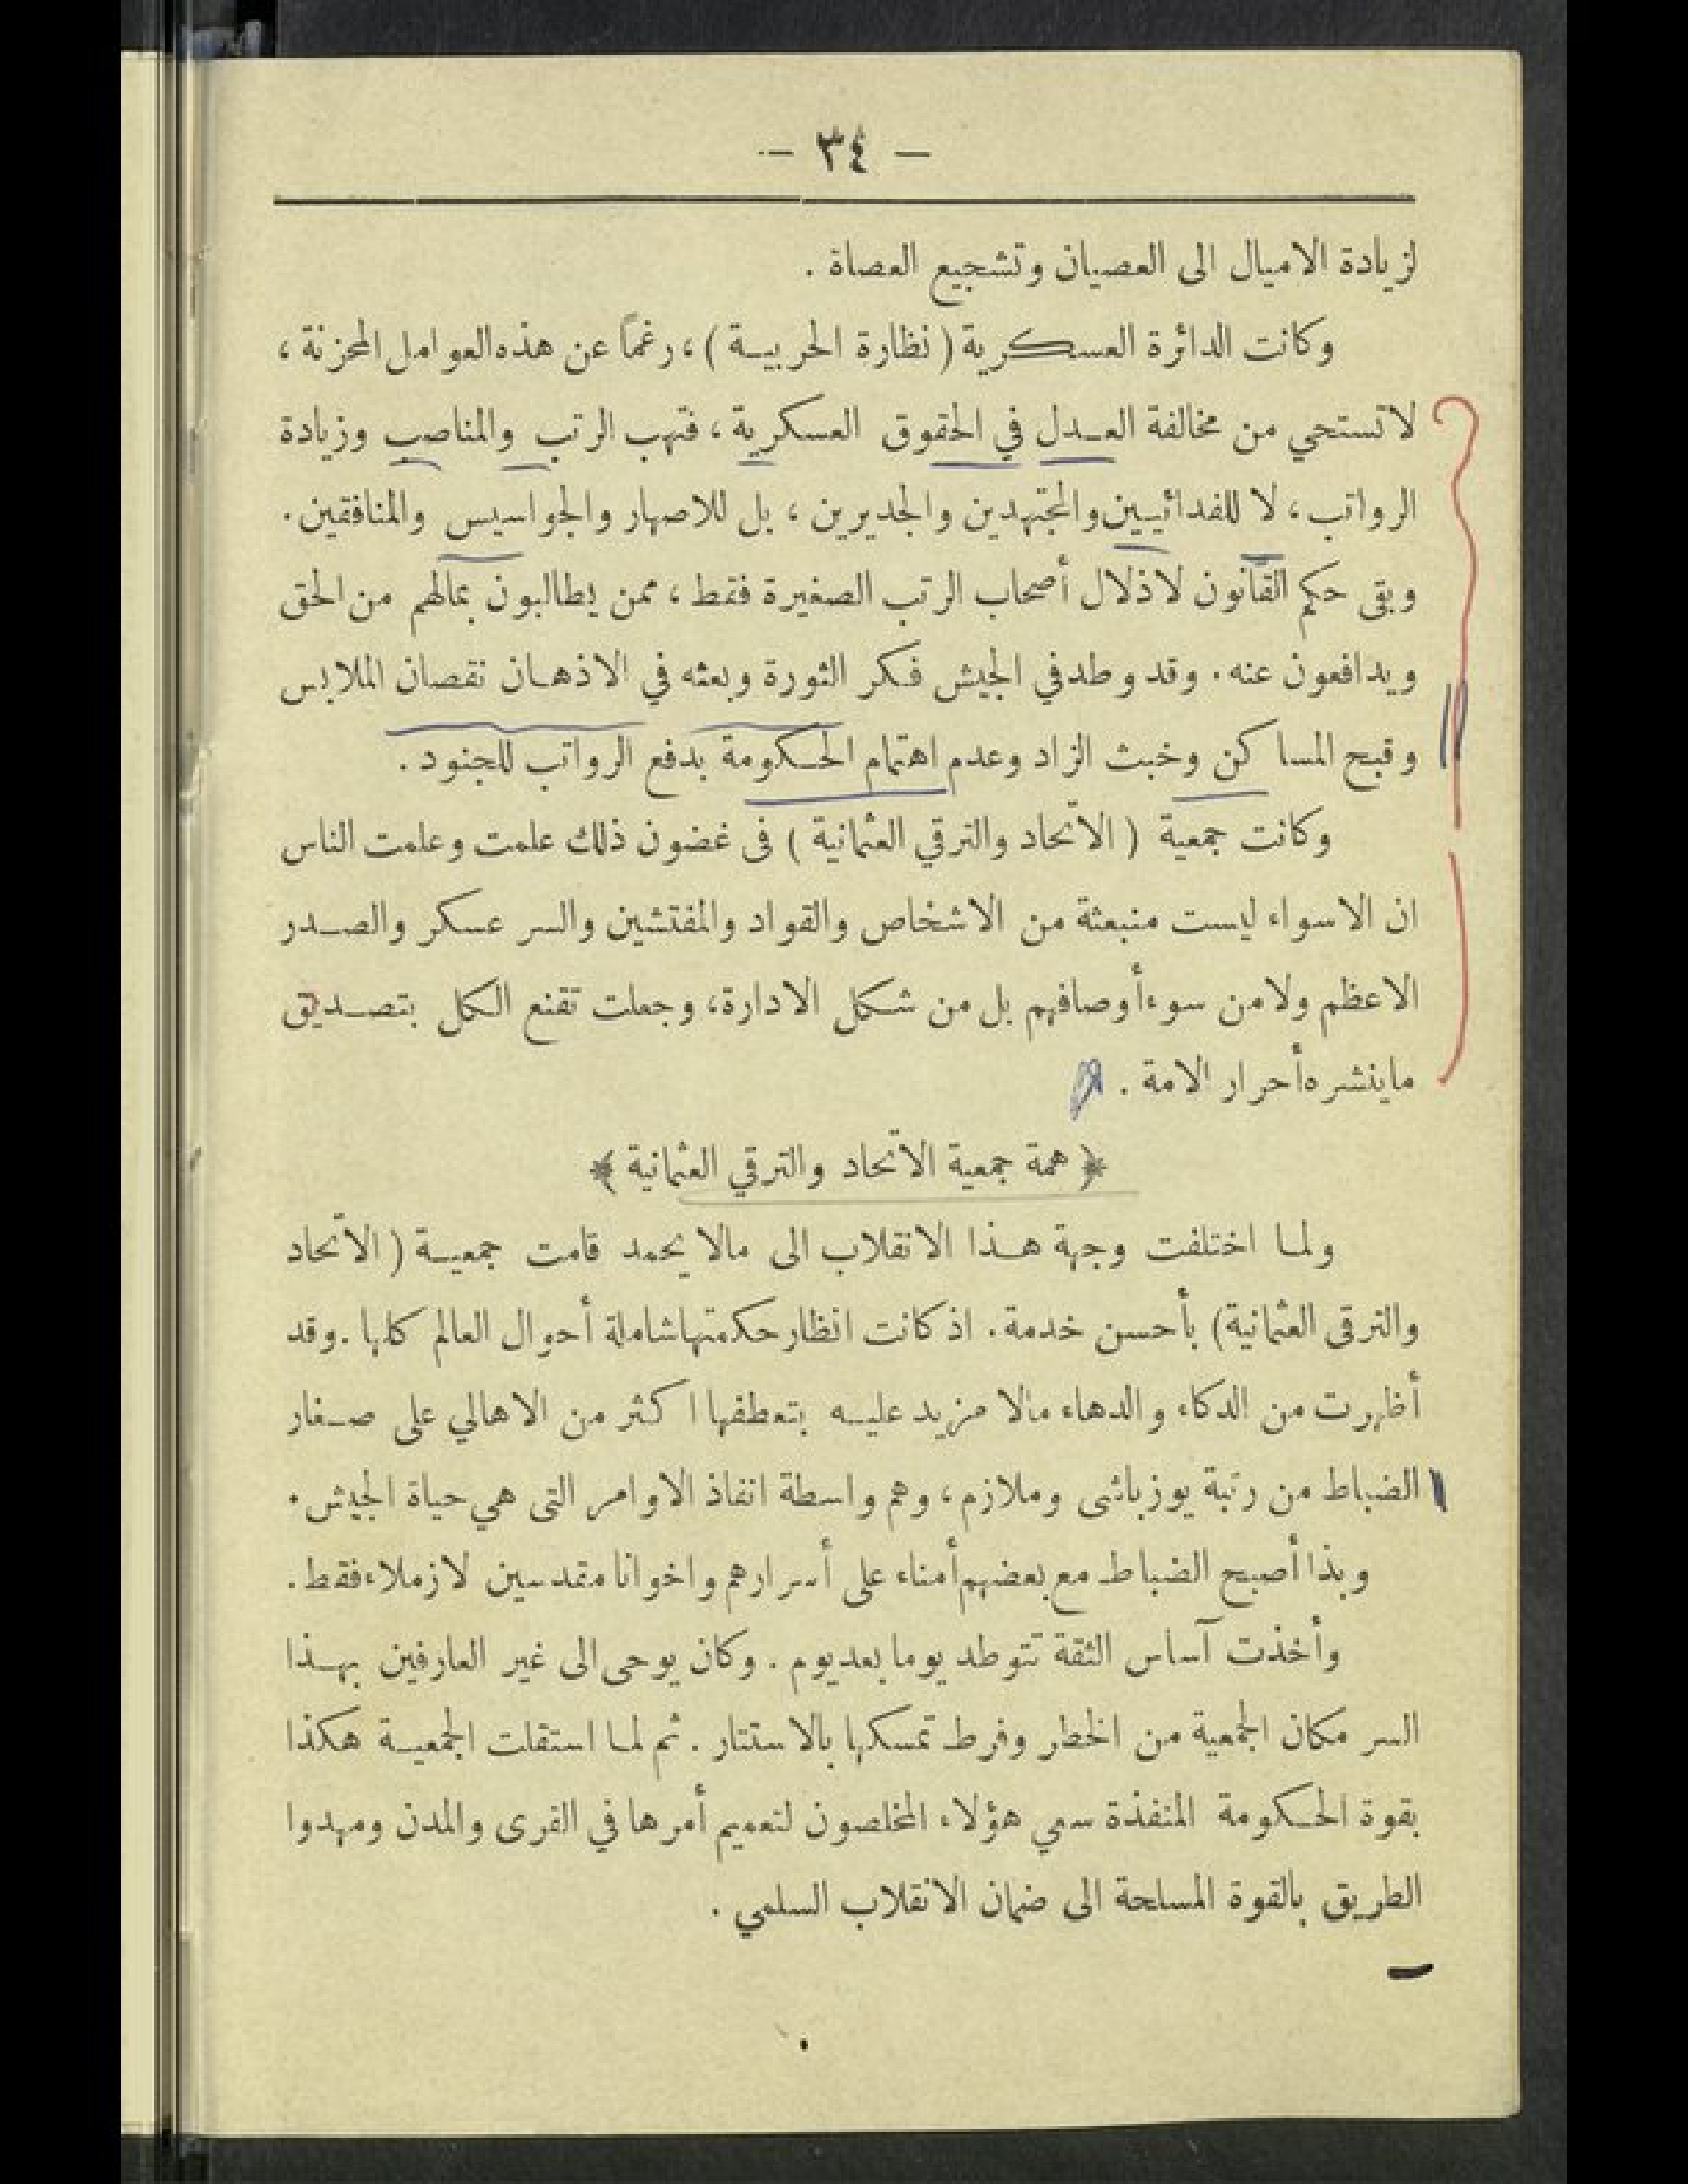 — ٣٤ —
لزيادة الاميال الى العصيان وتشجيع العصاة .
وكانت الدائرة العسكرية ( نظارة الحربية ) ، رغماً عن هذه العوامل المحزنة ،
لا تستحي من مخالفة العدل في الحقوق العسكرية ، فتهب الرتب والمناصب وزيادة
الرواتب ، لا للفدائيين والمجتهدين والجديرين ، بل للاصهار والجواسيس والمنافقين .
وبقى حكم القانون لاذلال أصحاب الرتب الصغيرة فقط ، ممن يطالبون بمالهم من الحق
ويدافعون عنه . وقد وطد في الجيش فكر الثورة وبعثه في الاذهان نقصان الملابس
وقبح المساكن وخبث الزاد وعدم اهتمام الحكومة بدفع الرواتب للجنود .
وكانت جمعية ( الاتحاد والترقي العثمانية ) فى غضون ذلك علمت وعلمت الناس
ان الاسواء ليست منبعثة من الاشخاص والقواد والمفتشين والسر عسكر والصدر
الاعظم ولا من سوء أوصافهم بل من شكل الادارة ، وجعلت تقنع الكل بتصديق
ماينشره أحرار الامة .
﴿ همة جمعية الاتحاد والترقي العثمانية ﴾
ولما اختلفت وجهة هذا الانقلاب الى مالا يحمد قامت جمعية ( الاتحاد
والترقى العثمانية) بأحسن خدمة . اذ كانت انظار حكمتها شاملة أحوال العالم كلها . وقد
أظهرت من الدكاء والدهاء مالا مزيد عليه بتعطفها اكثر من الاهالي على صغار
الضباط من رتبة يوزباشى وملازم ، وهم واسطة انفاذ الاوامر التى هي حياة الجيش .
وبذا أصبح الضباط مع بعضهم أمناء على أسرارهم واخوانا متمدسين لازملاء فقط .
وأخذت آساس الثقة تتوطد يوما بعد يوم . وكان يوحى الى غير العارفين بهذا
السر مكان الجمعية من الخطر وفرط تمسكها بالاستتار . ثم لما استقلت الجمعية هكذا
بقوة الحكومة المنفذة سعي هؤلاء المخلصون لتعميم أمرها في القرى والمدن ومهدوا
الطريق بالقوة المسلحة الى ضمان الانقلاب السلمي .